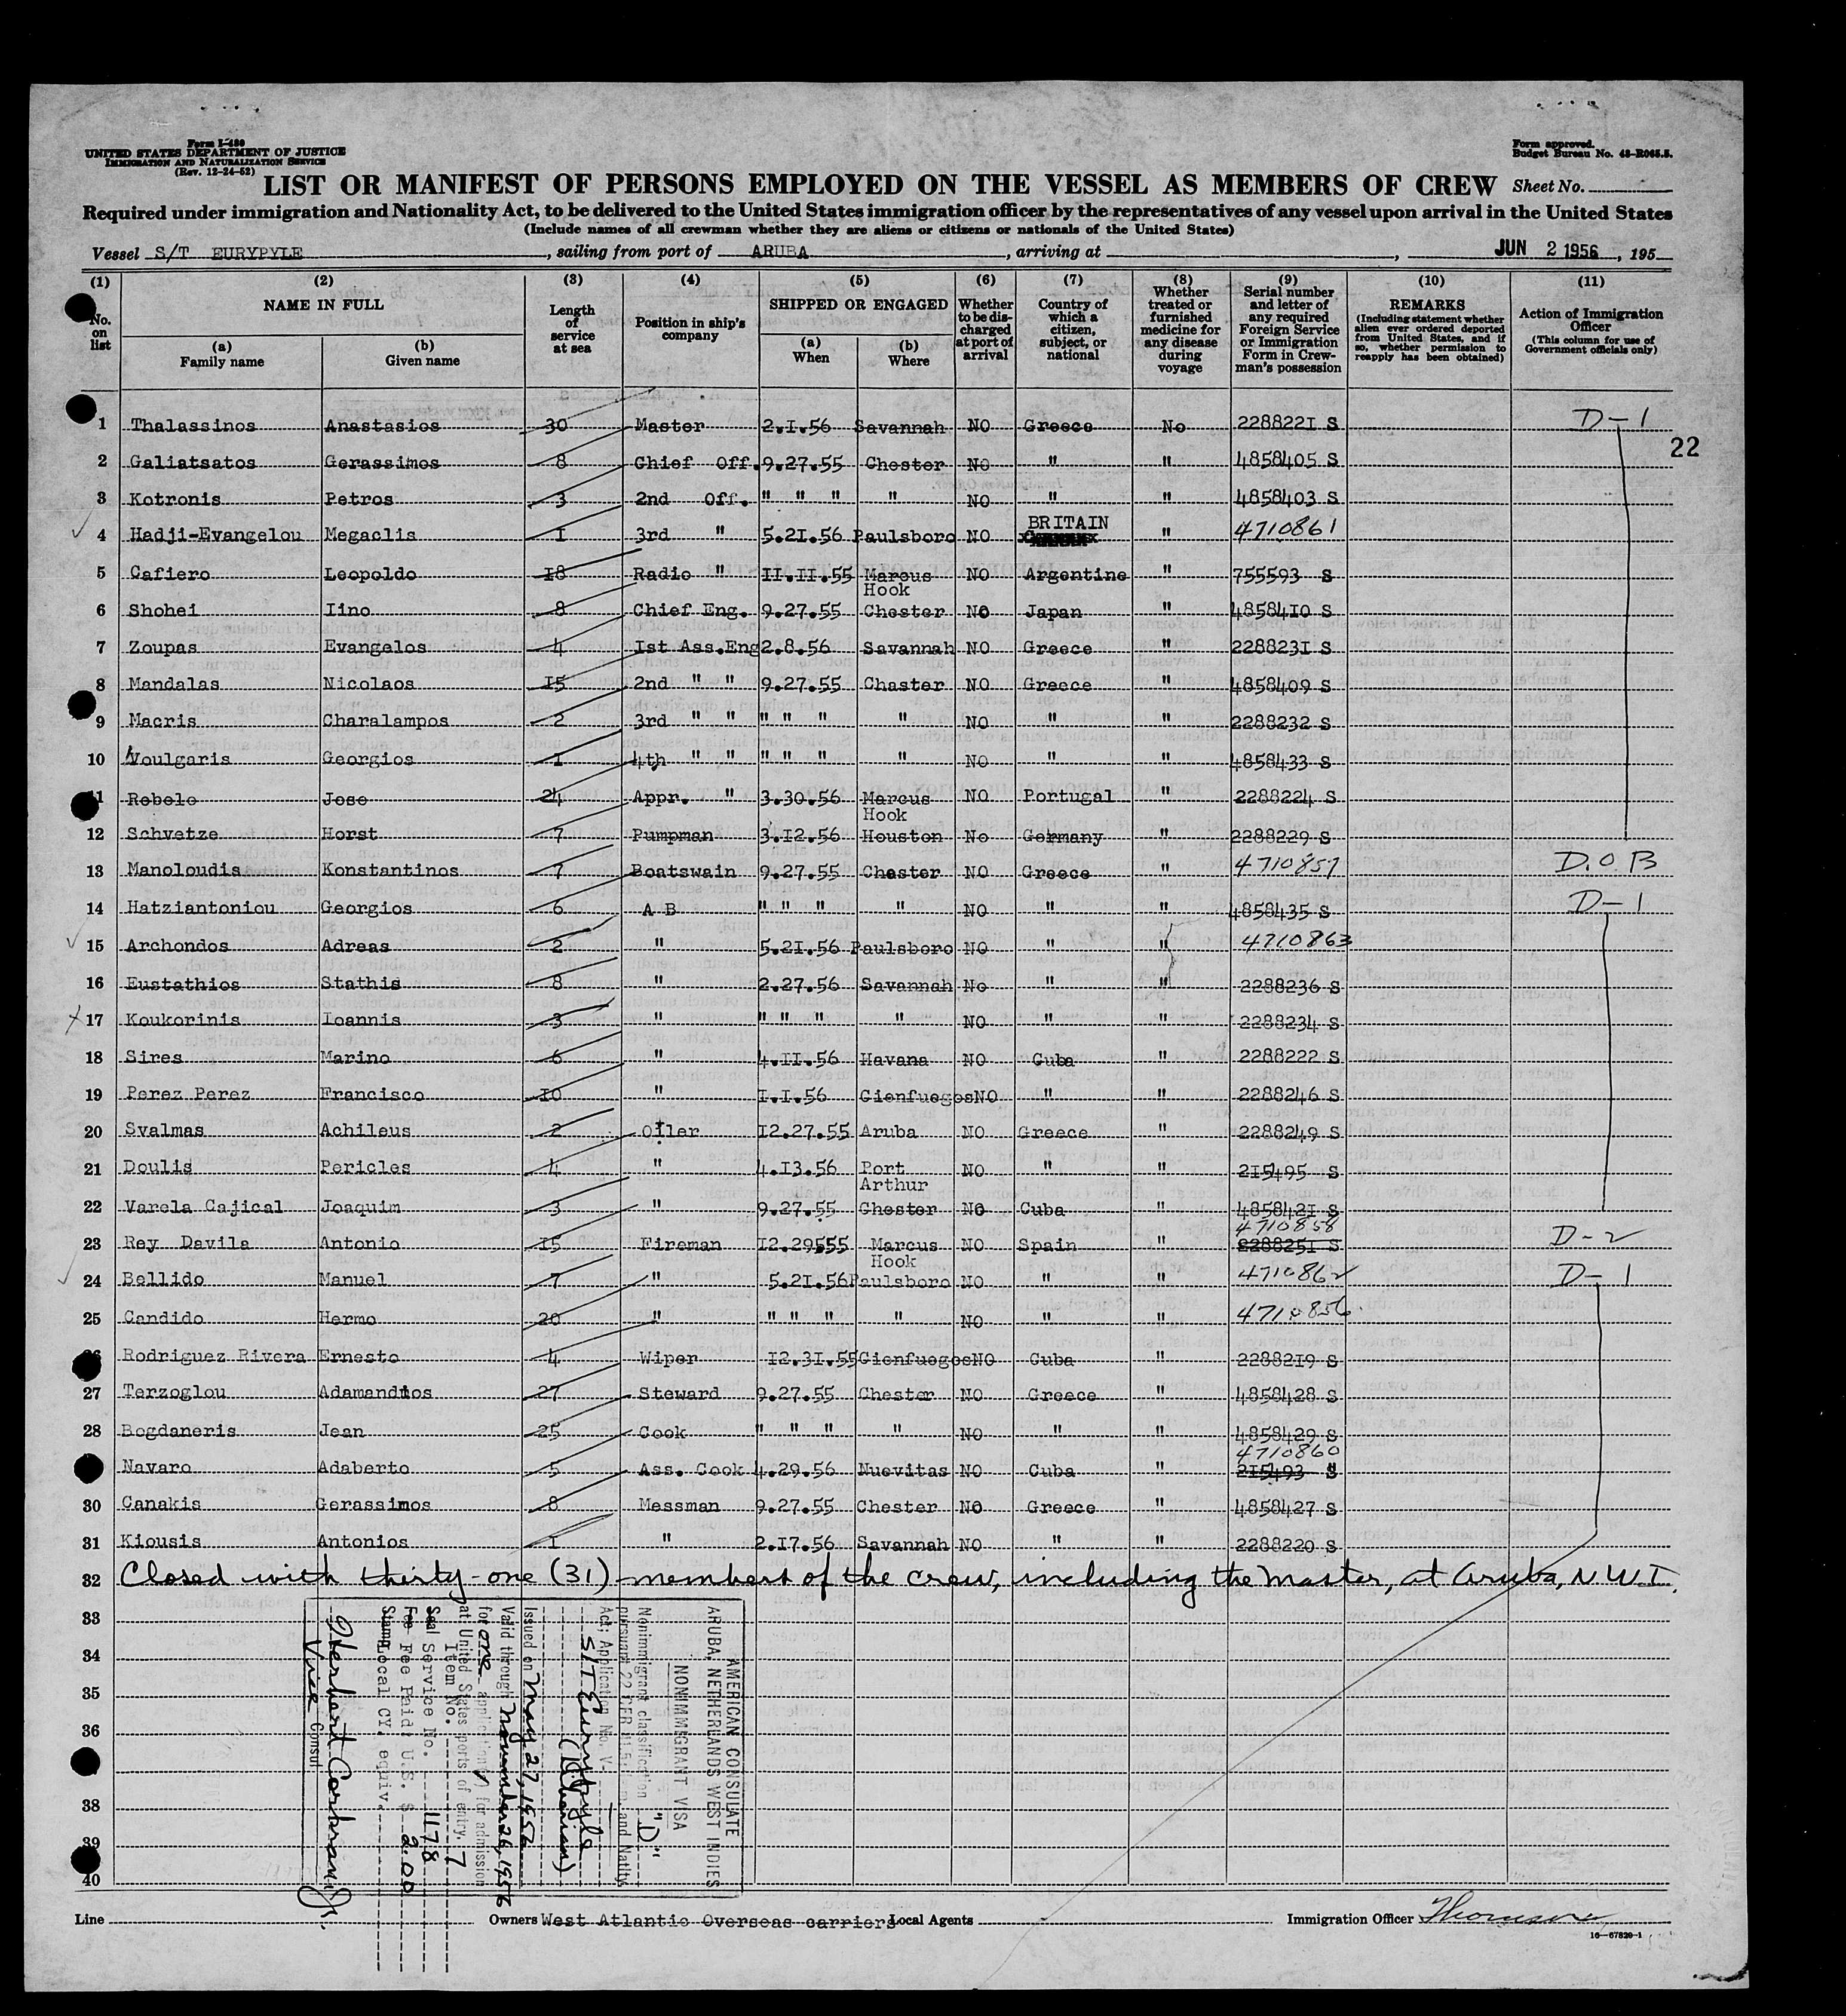 Form I-480
UNITED STATES DEPARTMENT OF JUSTICE
IMMIGRATION AND NATURALIZATION SERVICE
(Rev. 12-24-52)
Form approved.
Budget Bureau No. 43-R065.5.
LIST OR MANIFEST OF PERSONS EMPLOYED ON THE VESSEL AS MEMBERS OF CREW Sheet No.
Required under immigration and Nationality Act, to be delivered to the United States immigration officer by the representatives of any vessel upon arrival in the United States
(Include names of all crewman whether they are aliens or citizens or nationals of the United States)
Vessel S/T EURYPYLE, sailing from port of ARUBA, arriving at , JUN 2 1956, 195
(1) No. on list
(2) NAME IN FULL
(a) Family name
(b) Given name
(3) Length of service at sea
(4) Position in ship's company
(5) SHIPPED OR ENGAGED
(a) When
(b) Where
(6) Whether to be discharged at port of arrival
(7) Country of which a citizen, subject, or national
(8) Whether treated or furnished medicine for any disease during voyage
(9) Serial number and letter of any required Foreign Service or Immigration Form in Crewman's possession
(10) REMARKS (Including statement whether alien ever ordered deported from United States, and if so, whether permission to reapply has been obtained)
(11) Action of Immigration Officer (This column for use of Government officials only)
1 Thalassinos Anastasios 30 Master 2.I.56 Savannah NO Greece No 228822I S D-1
22
2 Galiatsatos Gerassimos 8 Chief Off. 9.27.55 Chester NO " " 4858405 S
3 Kotronis Petros 3 2nd Off. " " " " NO " " 4858403 S
4 Hadji-Evangelou Megaclis I 3rd " 5.2I.56 Paulsboro NO BRITAIN " 4710861
5 Cafiero Leopoldo I8 Radio " II.II.55 Marcus Hook NO Argentine " 755593 S
6 Shohei Iino 8 Chief Eng. 9.27.55 Chester NO Japan " 48584I0 S
7 Zoupas Evangelos 4 Ist Ass.Eng 2.8.56 Savannah NO Greece " 228823I S
8 Mandalas Nicolaos I5 2nd " " 9.27.55 Chaster NO Greece " 4858409 S
9 Macris Charalampos 2 3rd " " " " " " NO " " 2288232 S
10 Voulgaris Georgios I 4th " " " " " " NO " " 4858433 S
11 Rebelo Jose 24 Appr. " 3.30.56 Marcus Hook NO Portugal " 2288224 S
12 Schvetze Horst 7 Pumpman 3.I2.56 Houston No Germany " 2288229 S
13 Manoloudis Konstantinos 7 Boatswain 9.27.55 Chester NO Greece " 4710857 D.O.B
14 Hatziantoniou Georgios 6 A B " " " " NO " " 4858435 S D-1
15 Archondos Adreas 2 " 5.2I.56 Paulsboro NO " " 4710863
16 Eustathios Stathis 8 " 2.27.56 Savannah No " " 2288236 S
17 Koukorinis Ioannis 3 " " " " " NO " " 2288234 S
18 Sires Marino 6 " 4.II.56 Havana NO Cuba " 2288222 S
19 Perez Perez Francisco I0 " I.I.56 Cienfuegos NO " " 2288246 S
20 Svalmas Achileus 2 Oiler I2.27.55 Aruba NO Greece " 2288249 S
21 Doulis Pericles 4 " 4.I3.56 Port Arthur NO " " 2I5495 S
22 Varela Cajical Joaquim 3 " 9.27.55 Chester NO Cuba " 485842I S
23 Rey Davila Antonio I5 Fireman I2.29.55 Marcus Hook NO Spain " 4710858 228825I S D-2
24 Bellido Manuel 7 " 5.2I.56 Paulsboro NO " " 4710862 D-1
25 Candido Hermo 20 " " " " " NO " " 4710856
26 Rodriguez Rivera Ernesto 4 Wiper I2.3I.55 Cienfuegos NO Cuba " 22882I9 S
27 Terzoglou Adamandios 27 Steward 9.27.55 Chester NO Greece " 4858428 S
28 Bogdaneris Jean 25 Cook " " " " NO " " 4858429 S
29 Navaro Adaberto 5 Ass. Cook 4.29.56 Nuevitas NO Cuba " 4710860 2I5493 S
30 Canakis Gerassimos 8 Messman 9.27.55 Chester NO Greece " 4858427 S
31 Kiousis Antonios I " 2.I7.56 Savannah NO " " 2288220 S
32 Closed with thirty-one (31) members of the crew, including the Master, at Aruba, N.W.I.
33
34
35
36
37
38
39
40
AMERICAN CONSULATE
ARUBA, NETHERLANDS WEST INDIES
NONIMMIGRANT VISA
Nonimmigrant classification "D"
pursuant 22 CFR and Natlty
Act; Application No. V-
S/T Eurypyle
(Liberian)
Issued on May 27, 1956
Valid through November 26, 1956
for one application(s) for admission
at United States ports of entry.
Item No. 7
Seal Service No. 1178
Fee Fee Paid U.S. $ 2.00
Stamp Local CY. equiv.
Herbert Cochran Jr.
Vice Consul
Line Owners West Atlantic Overseas carriers Local Agents Immigration Officer Thomson
16-67820-1